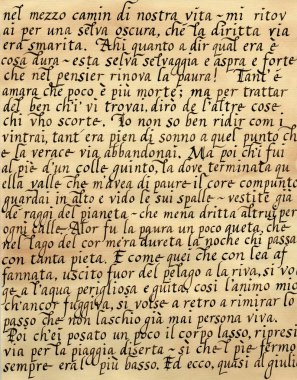 nel mezzo camin di nostra vita - mi ritov
ai per una selva oscura, che la diritta via
era smarita. Ahi quanto a dir qual era è
cosa dura - esta selva selvaggia e aspra e forte
che nel pensier rinova la paura! Tant'è
amara che poco è più morte; ma per trattar
del ben ch'i' vi trovai, dirò de l'altre cose
chi vho scorte. Io non so ben ridir com i
vintrai, tant era pien di sonno a quel punto ch
e la verace via abbandonai. Ma poi ch'i fui
al piè d'un colle guinto, la dove terminata qu
ella valle che mavea di paure il core compunto
guardai in alto e vido le sui spalle - vestite già
de' raggi del pianeta - che mena dritta altrui per
ogni calle. Alor fu la paura un poco queta, che
nel lago del cor m'era dureta la noche chi passa
con tanta pieta. E come quei che con lea af
fannata, uscito fuor del pelago a la riva, si vo
ge a l'aqua perigliosa e guita, cosi l'animo mio
ch'ancor fuggiva, si volse a retro a rimirar lo
passo che non laschio già mai persona viva.
Poi ch'ei posato un poco il corpo lasso, ripresi
via per la piaggia diserta - sì che l piè fermo
sempre era'l più basso. Ed ecco, quasi al giuli